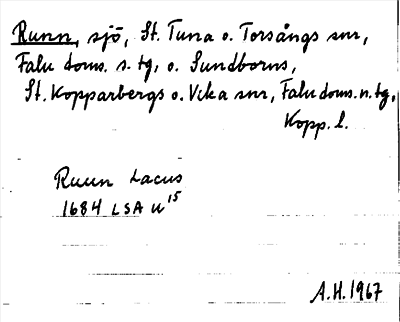 Runn, sjö, St. Tuna o. Torsångs snr,
Falu doms. s. tg, o. Sundborns,
St. Kopparbergs o. Vika snr, Falu doms. n. tg,
Kopp. l.
Runn Lacus
1684 LSA U 15
A.H. 1967